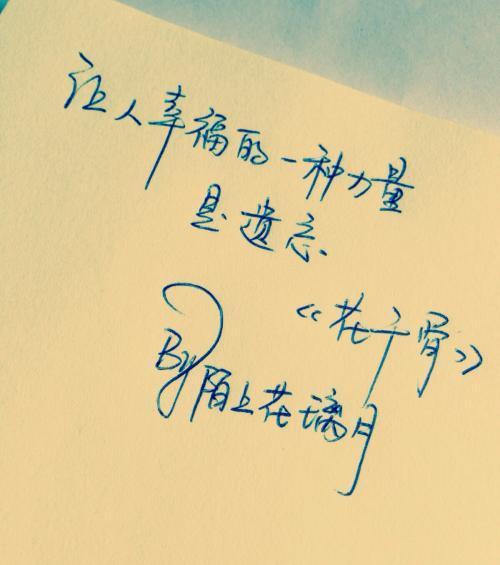 让人幸福的一种力量
是遗忘.
《花千骨》
By陌上花璃月